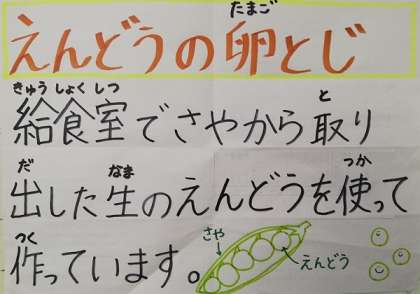 たまご
えんどうの卵とじ
きゅうしょくしつ と
給食室でさやから取り
だ なま つか
出した生のえんどうを使って
つく
作っています。
さや
えんどう